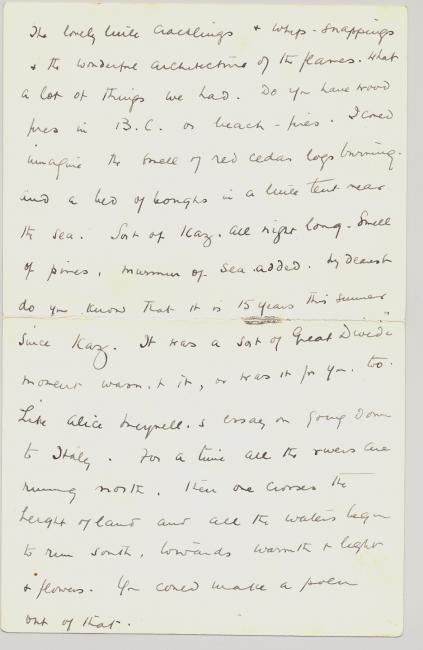 The lovely little cracklings & whip-snappings
& the wonderful architecture of the flames. What
a lot of things we had. Do you have wood
fires in B.C. or beach-fires. I could
imagine the smell of red cedar logs burning.
and a bed of boughs in a little tent near
the sea. Sort of Kaz. all night long. Smell
of pines, murmur of sea added. My dearest
do you know that it is 15 years this summer
since Kaz. It was a sort of "Great Divide"
moment wasn't it, or was it for you too.
Like Alice Meynell's essay on going down
to Italy. For a time all the rivers are
running north. Then one crosses the
height of land and all the waters begin
to run south, towards warmth & light
& flowers. You could make a poem
out of that.